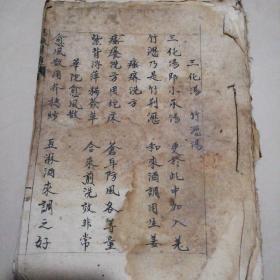 三化湯 竹瀝湯
三化湯即小承湯 更於此中加入羌
竹瀝乃是竹荊瀝 和來酒調用生姜
瘙癢洗方
瘙癢洗方用蛇床 蒼耳防風各等量
紫背浮萍豨薟草 合來煎洗效非常
華陀愈風散
愈風散用芥穗炒 豆淋酒來調之好